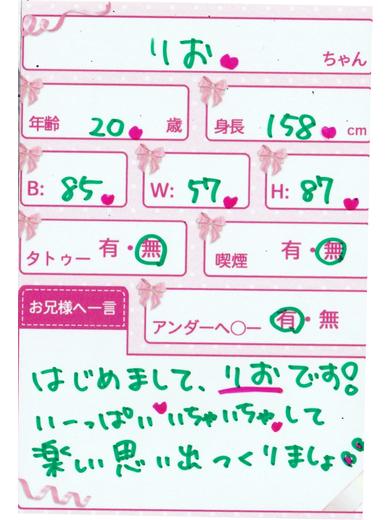 りお ちゃん
年齢 20 歳 身長 158 cm
B: 85 W: 57 H: 87
タトゥー 有・無 喫煙 有・無
お兄様へ一言 アンダーへ○ー 有・無
はじめまして、りおです!
いーっぱい いちゃいちゃして
楽しい思い出つくりましょ